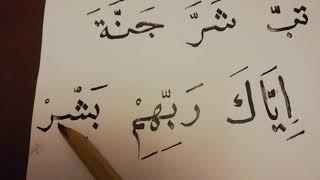 تبّ شَرَّ جَنَّةَ
اِيَّاكَ رَبِّهِمْ بَشِّرْ